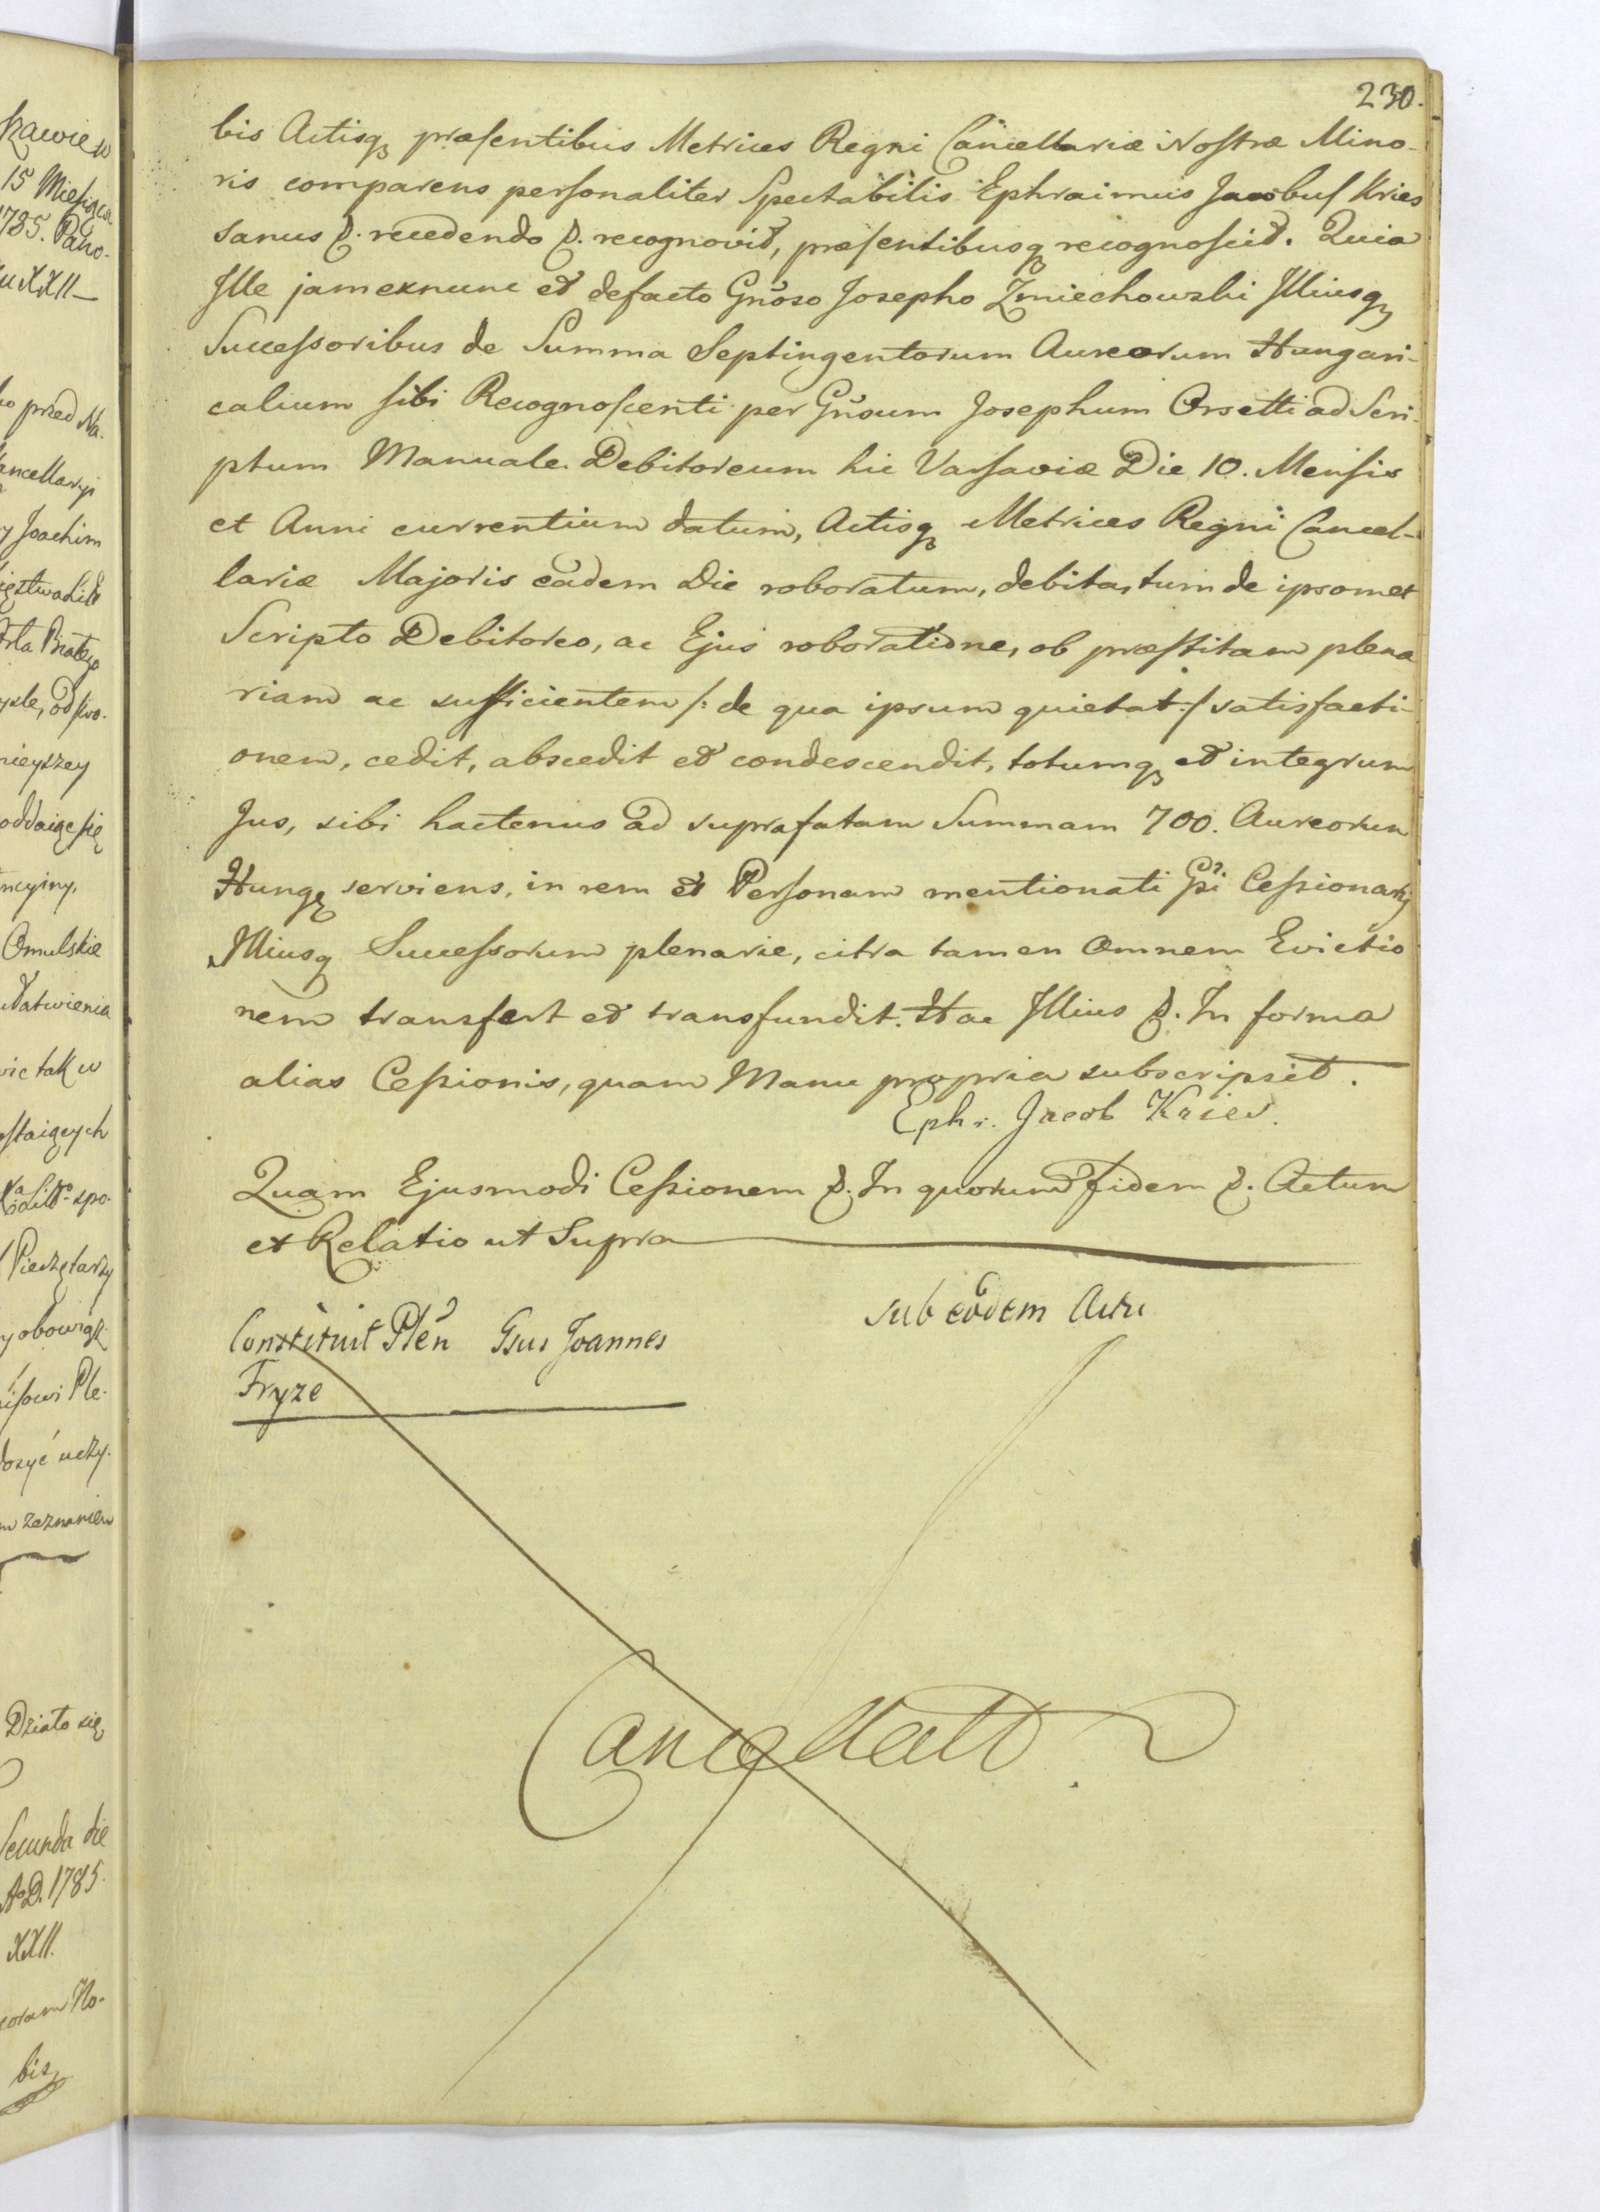 kawie w
15 Miesiąca
1785. Pano-
XXII
230.
bis Actisq præsentibus Metrices Regni Cancellariæ Nostræ Mino-
ris comparens personaliter Spectabilis Ephraimus Jacobus Kries
sanus &. recedendo &. recognovit, præsentibusq recognoscit. Quia
Ille jam exnunc et defacto Gñoso Josepho Zmiechowski Illiusq
Successoribus de Summa Septingentorum Aureorum Hungari-
calium sibi Recognoscenti per Gñsum Josephum Orsetti ad Scri-
ptum Manuale Debitoreum hic Varsaviæ Die 10. Mensis
et Anni currentium datum, Actisq Metrices Regni Cancel-
lariæ Majoris eadem Die roboratum, debita, tum de ipsomet
Scripto Debitoreo, ac Ejus roboratione, ob præstitam plena
riam ac sufficientem /: de qua ipsum quietat :/ satisfacti-
onem, cedit, abscedit et condescendit, totumq et integrum
Jus, sibi hactenus ad suprafatam Summam 700. Aureorum
Hungq serviens, in rem et Personam mentionati Gsi Cessionarij
Illiusq Successorum plenarie, citra tamen omnem Evictio
nem transfert et transfundit. Hac Illius &. In forma
alias Cessionis, quam Manu propria subscripsit.
Ephr. Jacob Kries.
Quam Ejusmodi Cessionem &. In quorum fidem &. Actum
et Relatio ut Supra
Constituit Pleñ Gsus Joannes
Fryze
sub eodem Actu
Cancellatt
przed Na-
ancellaryi
y Joachim
nieyszey
oddaiąc się
ncyiny,
Omulskie
ułatwienia
wie tak w
staiących
spo-
Pieczętarzy
y obowiąz-
isowi Ple-
dosyć uczy-
m zeznaniem
Działo się
Secunda die
A. D. 1785.
XXII.
coram No-
bis